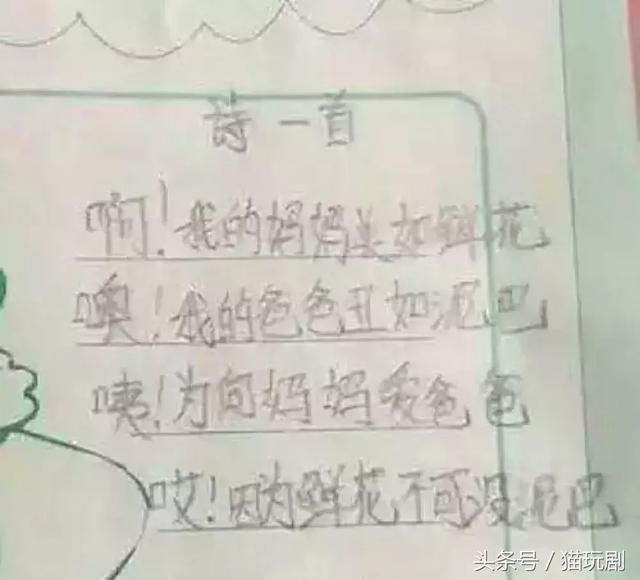 诗一首
啊！我的妈妈美如鲜花
噢！我的爸爸丑如泥巴
咦！为何妈妈爱爸爸
哎！因为鲜花不可没泥巴
头条号／猫玩剧